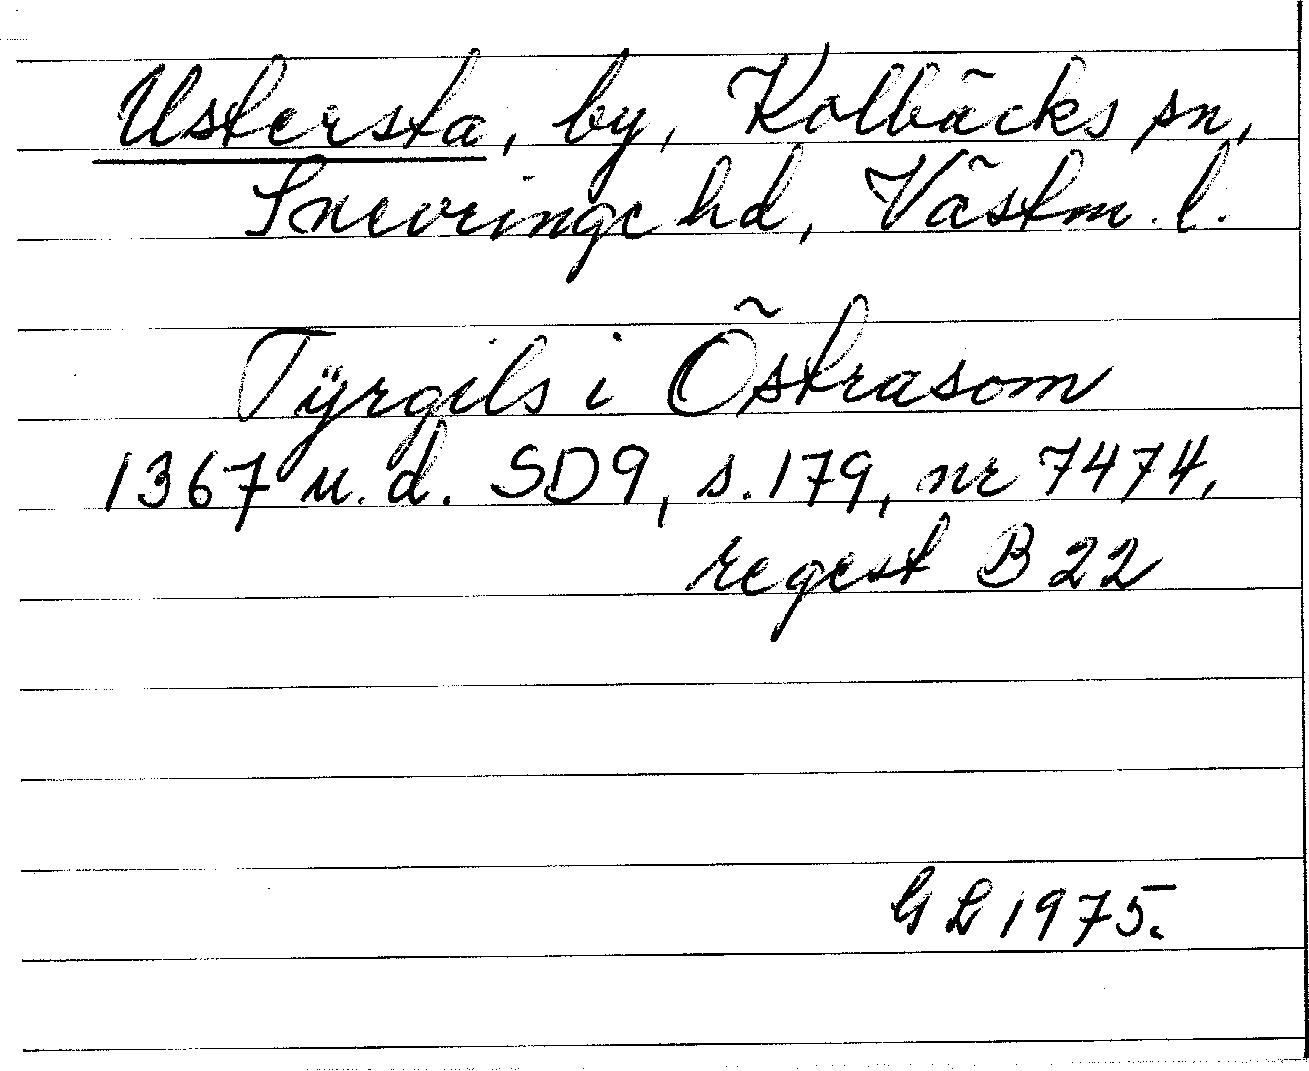 Ustersta, by, Kolbäcks sn,
Snevringe hd, Västm. l.
Tyrgils i Östrasom
1367 u.d. SD9, s.179, nr 7474,
regest B 22
GL 1975.